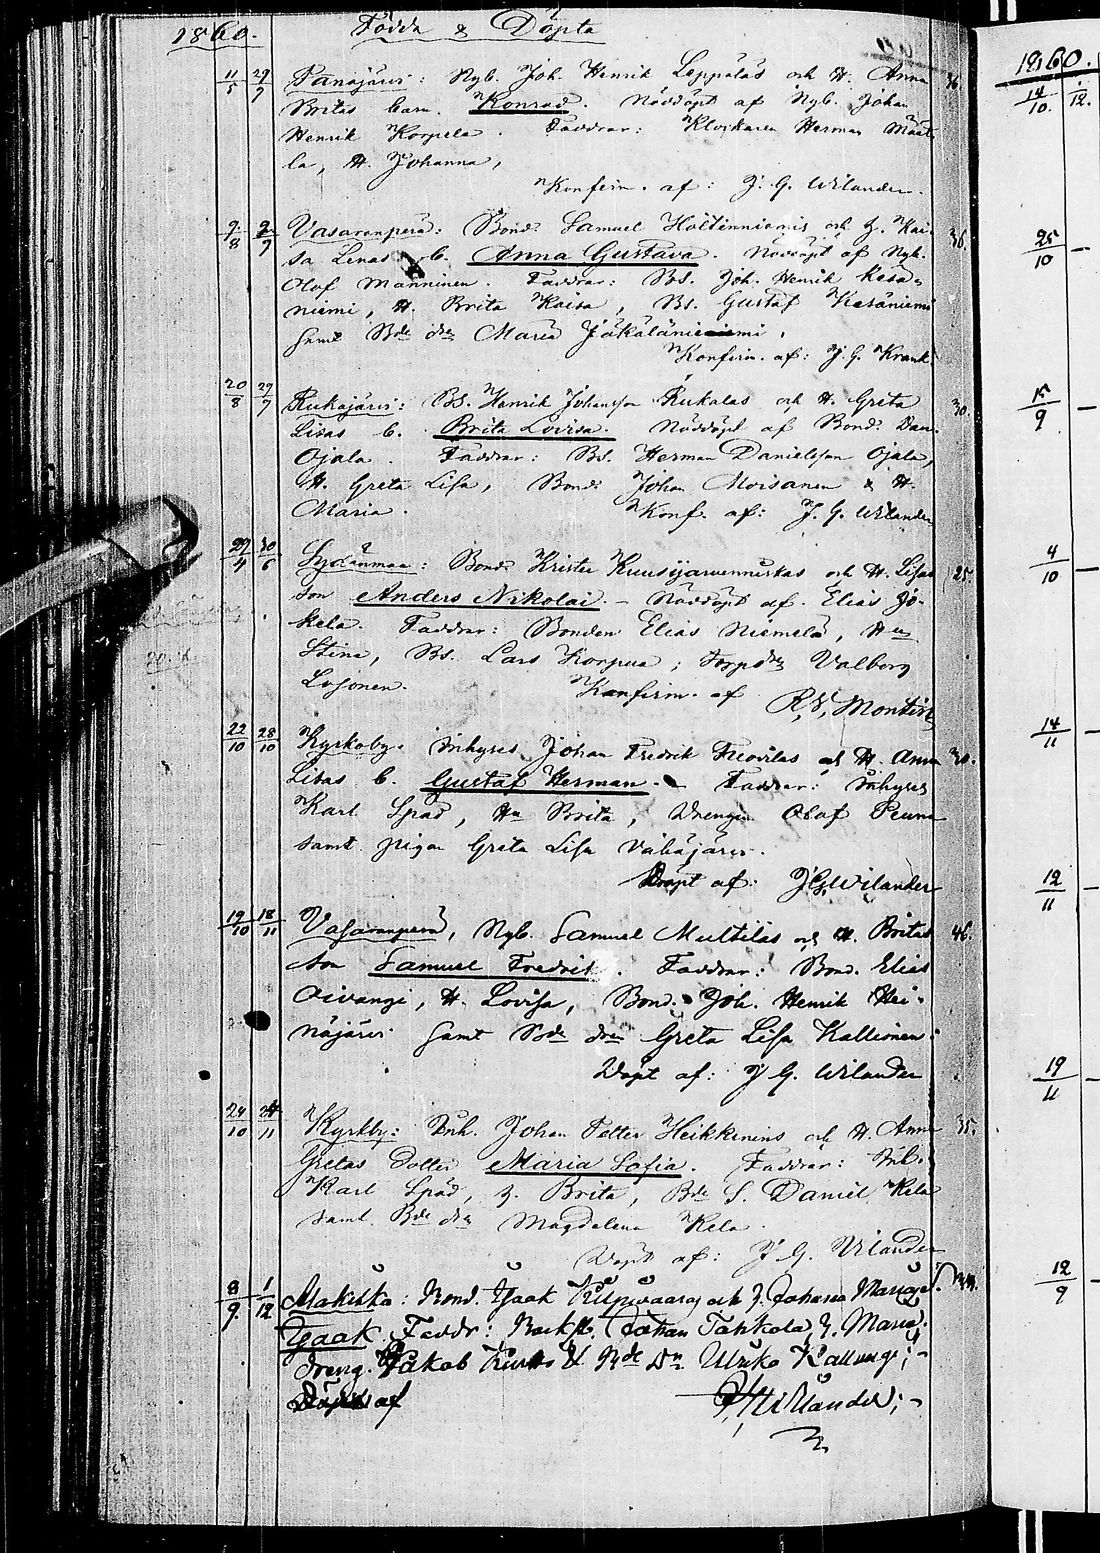 1860. Födda & Döpta
11/5 29/7 Panajärvi: Nyb. Joh. Henrik Leppäläs och H. Anna 36.
Britas barn. Konrad. Nöddöpt af Nyb. Johan
Henrik Korpela. Faddrar: Klockaren Herman Määt-
la, H. Johanna,
Konfirm. af: J. G. Wilander.
9/8 2/9 Vasaranperä: Bond. Samuel Holtinniemis och H. Kai- 36.
sa Lenas b. Anna Gustava. Nöddöpt af Nyb.
Olof Manninen. Faddrar: Bs. Joh. Henrik Kesä-
niemi, H. Brita Kaisa, Bs. Gustaf Kesäniemi
samt Bde dr Maria Jäkäläniemi.
Konfirm. af: J. G. Krank.
20/8 29/9 Rukajärvi: Bs. Henrik Johansson Rukalas och H. Greta 30.
Lisas b. Brita Lovisa. Nöddöpt af Bond. Dan.
Ojala. Faddrar: Bs. Herman Danielsson Ojala,
H. Greta Lisa, Bond. Johan Moisanen & H.
Maria. Konf. af: J. G. Wilander
29/4 30/6 Sydänmaa: Bond. Krister Kuusijärvenniskas och H. Lisas 25.
son Anders Nikolai. – Nöddöpt af Elias Jo-
kela. Faddrar: Bonden Elias Niemelä, Hu
Stina, Bs. Lars Korpua; Torpdr Valborg
Losonen. Konfirm. af R. V. Montin
22/10 28/10 Kyrkoby. Inhyses Johan Fredrik och H. Anna 30.
Lisas b. Gustaf Herman. – Faddrar: Inhyses
Karl Späd, Hu Brita, Drengen Olof Peura
samt pigan Greta Lisa Vähäjärvi.
Döpt af: J G Wilander
19/10 18/11 Vasaranperä, Nyb. Samuel Multilas och H. Britas 46.
son Samuel Fredrik. Faddrar: Bond. Elias
Oivangi, H. Lovisa, Bond. Joh. Henrik Hei-
näjärvi samt Bde drn Greta Lisa Kallionen.
Döpt af: J G. Wilander
24/10 24/11 Kyrkby: Inh. Johan Petter Heikkinens och H. Anna 35.
Gretas dotter Maria Sofia. Faddrar: Inh.
Karl Späd, H. Brita, Bde S. Daniel Kela
samt Bde dr Magdalena Kela.
Döpt af: J G. Wilander
8/9. 1/12 Mäkiska: Bond. Isaak och H. Johanna Marias
Isaak. Faddr: Backst. Johan Tahkola, H. Maria.
dreng. Jakob & Bde Dn Ulrika Kallunge; –
Döpt af Wilander; –
1860.
14/10. /12.
25/10 –
15/9 –
4/10 –
14/11 –
12/11 –
19/11 –
12/9 –